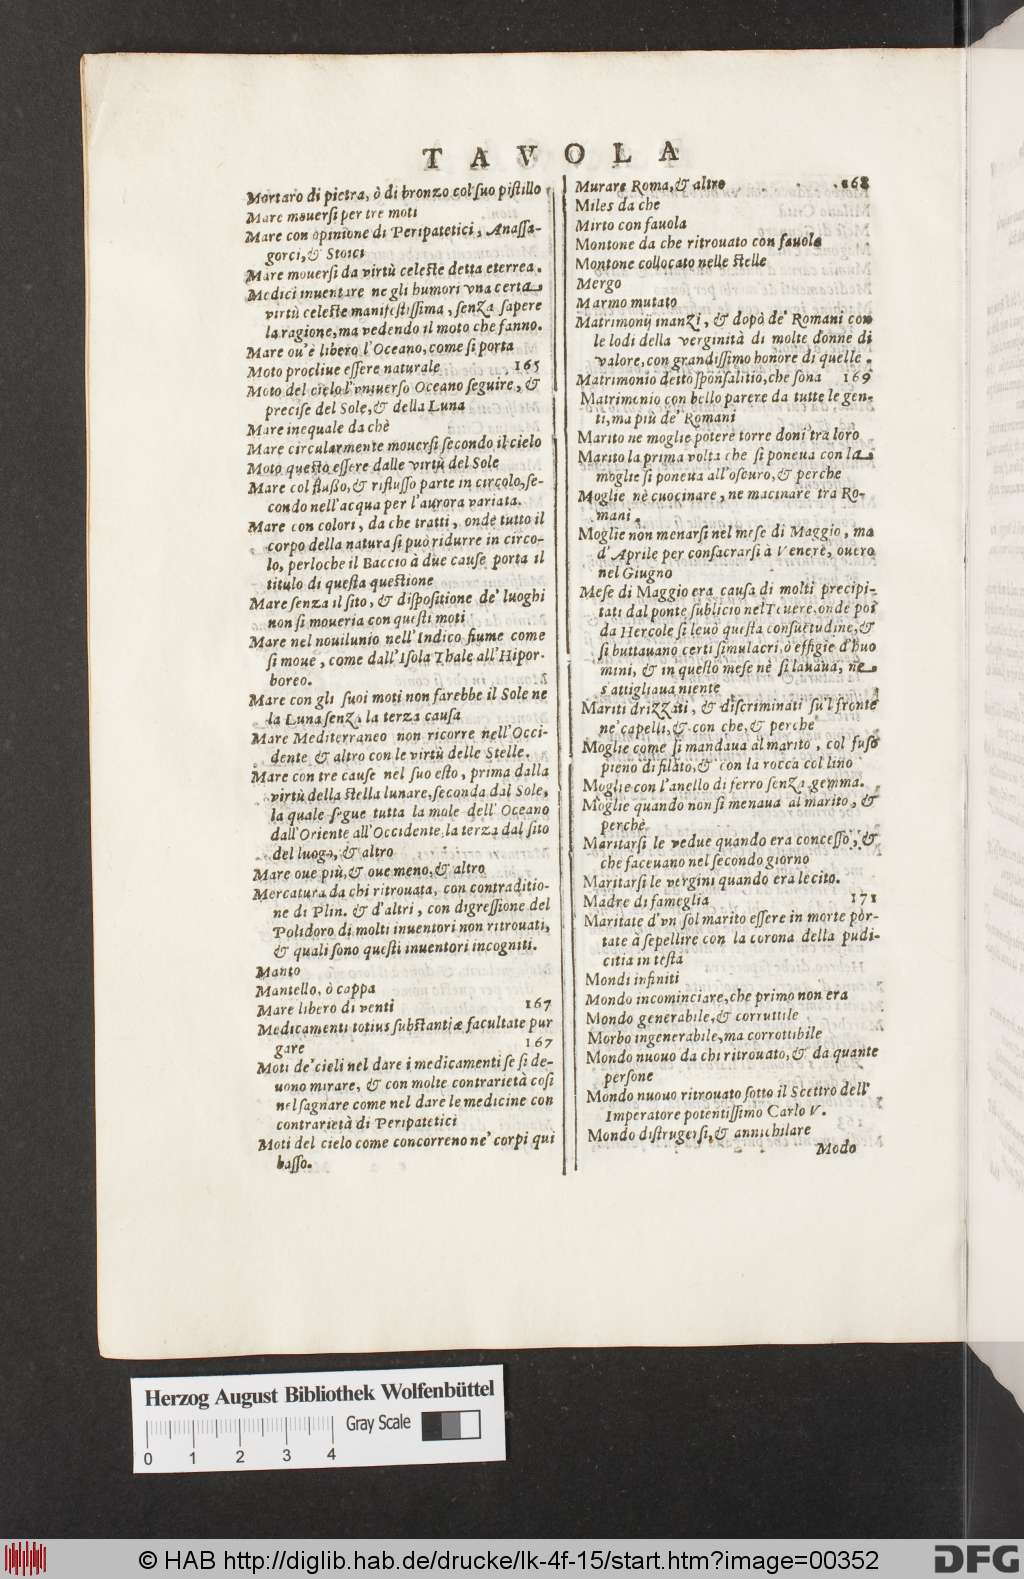 TAVOLA
Mortaro di pietra, ò di bronzo col suo pistillo
Mare mouersi per tre moti
Mare con opinione di Peripatetici, Anassa-
gorci, & Stoici
Mare mouersi da virtù celeste detta eterrea.
Medici inuentare ne gli humori vna certa
virtù celeste manifestissima, senza sapere
la ragione, ma vedendo il moto che fanno.
Mare ou'è libero l'Oceano, come si porta
Moto procliue essere naturale 165
Moto del cielo l'vniuerso Oceano seguire, &
precise del Sole, & della Luna
Mare inequale da chè
Mare circularmente mouersi secondo il cielo
Moto questo essere dalle virtù del Sole
Mare col flußo, & riflusso parte in circolo, se-
condo nell'acqua per l'aurora variata.
Mare con colori, da che tratti, onde tutto il
corpo della natura si può ridurre in circo-
lo, perloche il Baccio à due cause porta il
titulo di questa questione
Mare senza il sito, & dispositione de' luoghi
non si moueria con questi moti
Mare nel nouilunio nell'Indico fiume come
si moue, come dall'Isola Thale all'Hipor-
boreo.
Mare con gli suoi moti non farebbe il Sole ne
la Luna senza la terza causa
Mare Mediterraneo non ricorre nell'Occi-
dente & altro con le virtù delle Stelle.
Mare con tre cause nel suo esto, prima dalla
virtù della stella lunare, seconda dal Sole,
la quale segue tutta la mole dell'Oceano
dall'Oriente all'Occidente, la terza dal sito
del luogo, & altro
Mare oue più, & oue meno, & altro
Mercatura da chi ritrouata, con contraditio-
ne di Plin. & d'altri, con digressione del
Polidoro di molti inuentori non ritrouati,
& quali sono questi inuentori incogniti.
Manto
Mantello, ò cappa
Mare libero di venti 167
Medicamenti totius substantiæ facultate pur
gare 167
Moti de' cieli nel dare i medicamenti se si de-
uono mirare, & con molte contrarietà cosi
nel sagnare come nel dare le medicine con
contrarietà di Peripatetici
Moti del cielo come concorreno ne' corpi qui
basso.
Murare Roma, & altro 168
Miles da che
Mirto con fauola
Montone da che ritrouato con fauola
Montone collocato nelle stelle
Mergo
Marmo mutato
Matrimonij inanzi, & dopò de' Romani con
le lodi della verginità di molte donne di
valore, con grandissimo honore di quelle.
Matrimonio detto sponsalitio, che sona 169
Matrimonio con bello parere da tutte le gen-
ti, ma più de' Romani
Marito ne moglie potere torre doni tra loro
Marito la prima volta che si poneua con la
moglie si poneua all'oscuro, & perche
Moglie nè cuocinare, ne macinare tra Ro-
mani.
Moglie non menarsi nel mese di Maggio, ma
d'Aprile per consacrarsi à Venere, ouero
nel Giugno
Mese di Maggio era causa di molti precipi-
tati dal ponte sublicio nel Teuere, onde poi
da Hercole si leuò questa consuetudine, &
si buttauano certi simulacri, ò effigie d'huo
mini, & in questo mese nè si lauaua, ne
s'attigliaua niente
Mariti drizzati, & discriminati su'l fronte
ne' capelli, & con che, & perche
Moglie come si mandaua al marito, col fuso
pieno di filato, & con la rocca col lino
Moglie con l'anello di ferro senza gemma.
Moglie quando non si menaua al marito, &
perchè
Maritarsi le vedue quando era concesso, &
che faceuano nel secondo giorno
Maritarsi le vergini quando era lecito.
Madre di fameglia 171
Maritate d'vn sol marito essere in morte por-
tate à sepellire con la corona della pudi-
citia in testa
Mondi infiniti
Mondo incominciare, che primo non era
Mondo generabile, & corruttile
Morbo ingenerabile, ma corrottibile
Mondo nuouo da chi ritrouato, & da quante
persone
Mondo nuouo ritrouato sotto il Scettro dell'
Imperatore potentissimo Carlo V.
Mondo distrugersi, & annichilare
Modo
Herzog August Bibliothek Wolfenbüttel
Gray Scale
0 1 2 3 4
© HAB http://diglib.hab.de/drucke/lk-4f-15/start.htm?image=00352
DFG